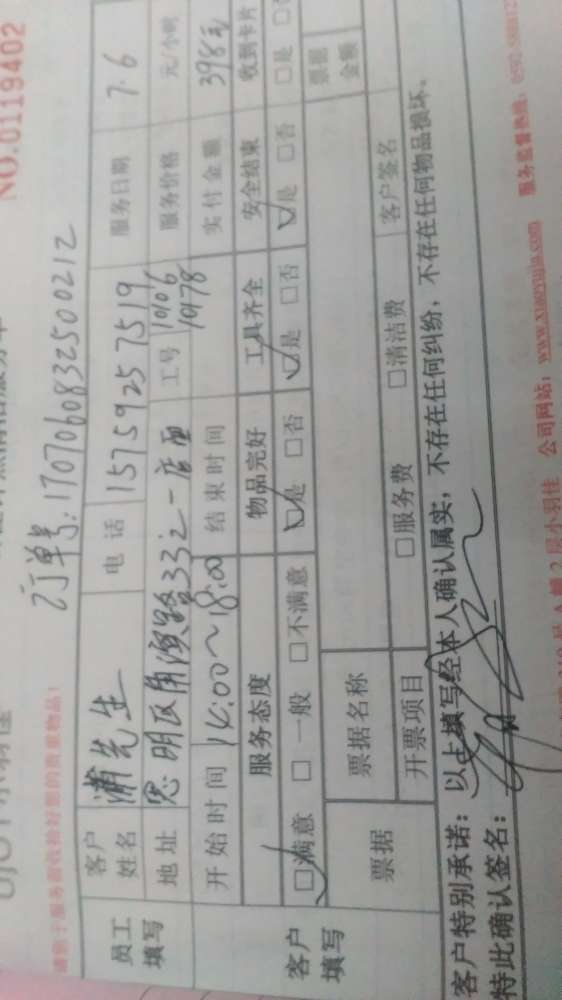 NO.0119402
订单号:170706083250021Z
客户姓名 浦先生 电话 15759257519 服务日期 7.6
员工填写 地址 思明区角滨路33之一店面 工号 10106 10178 服务价格 元/小时
开始时间 14:00～18:00 结束时间 实付金额 398元
服务态度 物品完好 工具齐全 安全结束 收到卡片
客户填写 ☑满意 □一般 □不满意 ☑是 □否 ☑是 □否 ☑是 □否 □是
票据 票据名称 票据金额
开票项目 □服务费 □清洁费 客户签名
客户特别承诺：以上填写经本人确认属实，不存在任何纠纷，不存在任何物品损坏。
特此确认签名：
2层小羽佳 公司网站：www.xiaoyujia.com 服务监督热线：